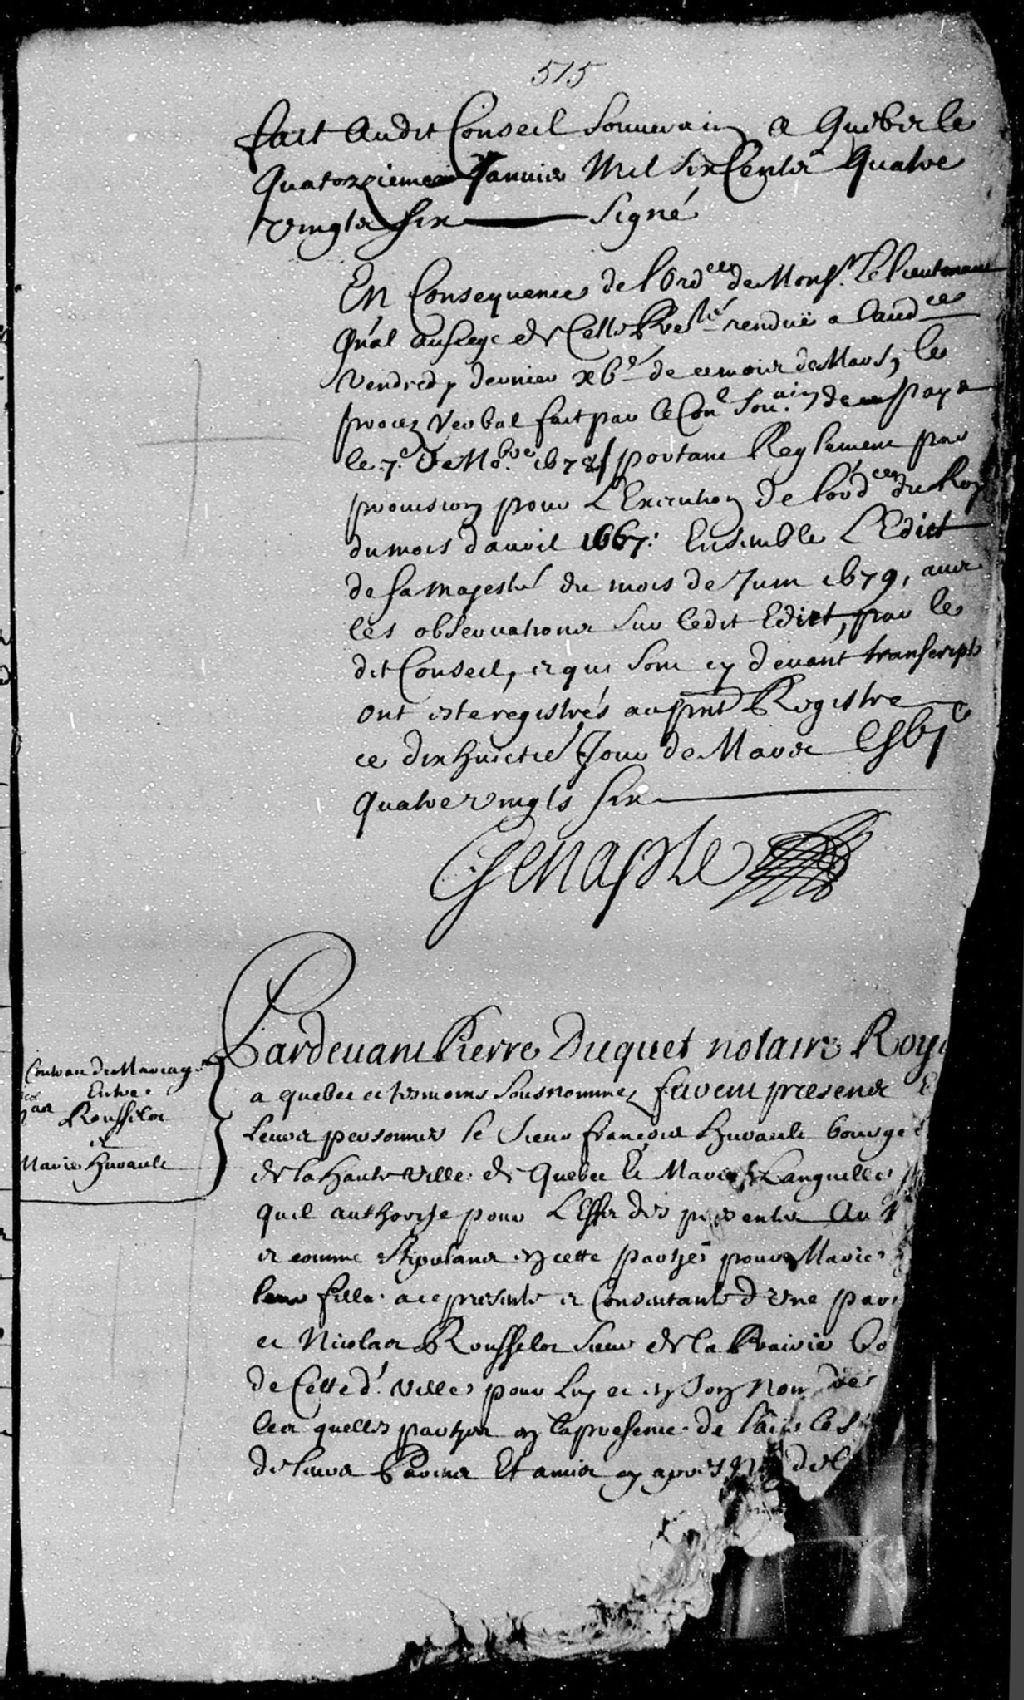 515
fait Audit Conseil Souverain a Quebec le
Quatorzieme Janvier Mil Six Cents Quatre
vingts Six Signé
En Consequence de l'ord.ce de Mons.r le lieutenant
Gn̄al au siege de Cette Prevté rendue a laud.ce
Vendredy dernier xbe de ce mois de Mars, le
procez verbal fait par le Conel Souain de ce pays
le 7e de 9bre 1678 portant Reglement par
provision pour L'Execution de lord.ce du Roy
du mois d'avril 1667: Ensemble L'Edict
de sa Majesté du mois de Juin 1679, avec
les observations sur ledit Edict, par le
dit Conseil, et qui sont cy devant transcripts
ont esté registrés au pn̄t Registre
ce dix huictie Jour de Mars
Quatre vingts six
Genaple
Pardevant Pierre Duquet notaire Roy
a quebec et tesmoins sousnommez furent presents
leurs personnes le Sieur françois Huvault bourge
de la Haute Ville de Quebec & Marie Languille
quil authorise pour L'Effet des presentes
et comme stipulans en cette partye pour Marie
leur fille a ce presente et Consentante d'Une par
et Nicolas Rousselot Sieur de la Prairie bo
de Cette d. ville pour luy et en son nom
les quelles partyes en la presence de
de leurs Parens Et amis cy apres
Contract de Mariage
Entre
Rousselot
et
Marie Huvault